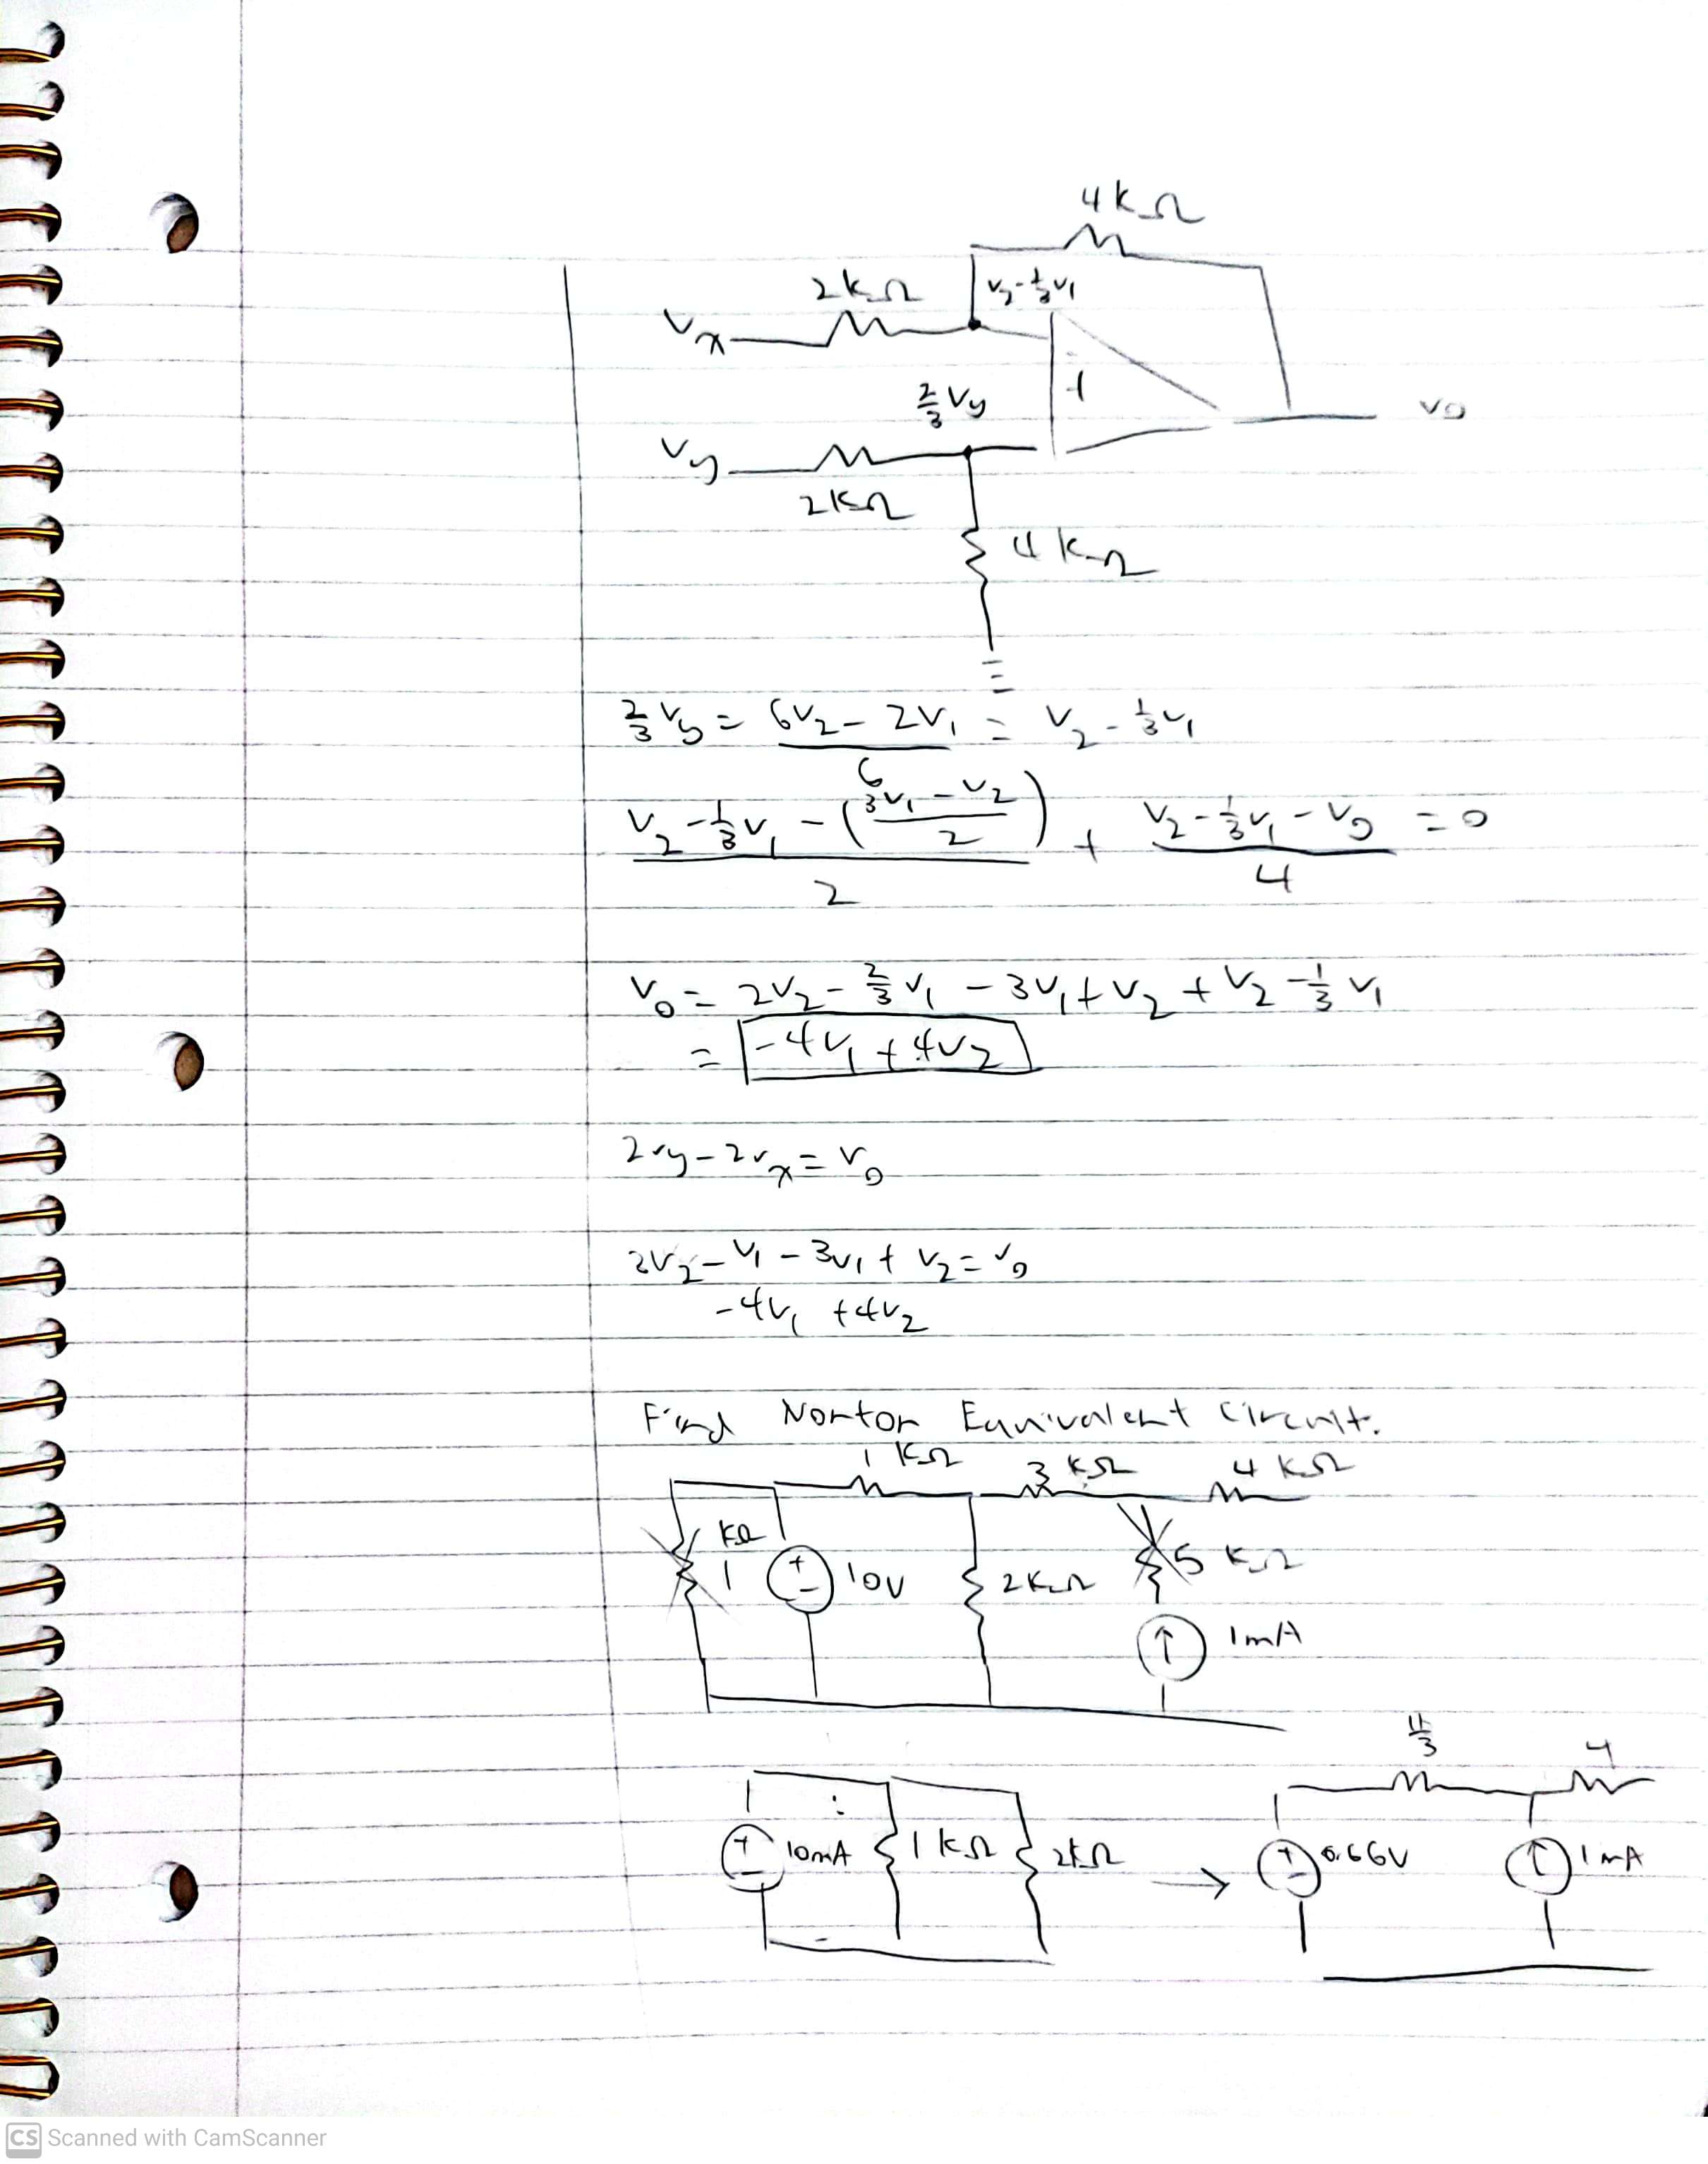 4kΩ
2kΩ
v₂-⅓v₁
Vx
-
+
⅔Vy
v₀
Vy
2kΩ
4kΩ
⅔Vy = (6V₂ - 2V₁)/6 = V₂ - ⅓V₁
(V₂ - ⅓V₁ - ((3V₁ - V₂)/2))/2 + (V₂ - ⅓V₁ - V₀)/4 = 0
V₀ = 2V₂ - ⅔V₁ - 3V₁ + V₂ + V₂ - ⅓V₁
= -4V₁ + 4V₂
2vy - 2vx = v₀
2V₂ - V₁ - 3V₁ + V₂ = V₀
-4V₁ +4V₂
Find Norton Equivalent Circuit.
1 kΩ
3 kΩ
4 kΩ
kΩ
1
+
-
10V
2kΩ
5 kΩ
↑
1mA
11/3
4
+
-
10mA
1 kΩ
2kΩ
→
+
-
0.66V
↑
1mA
CS Scanned with CamScanner